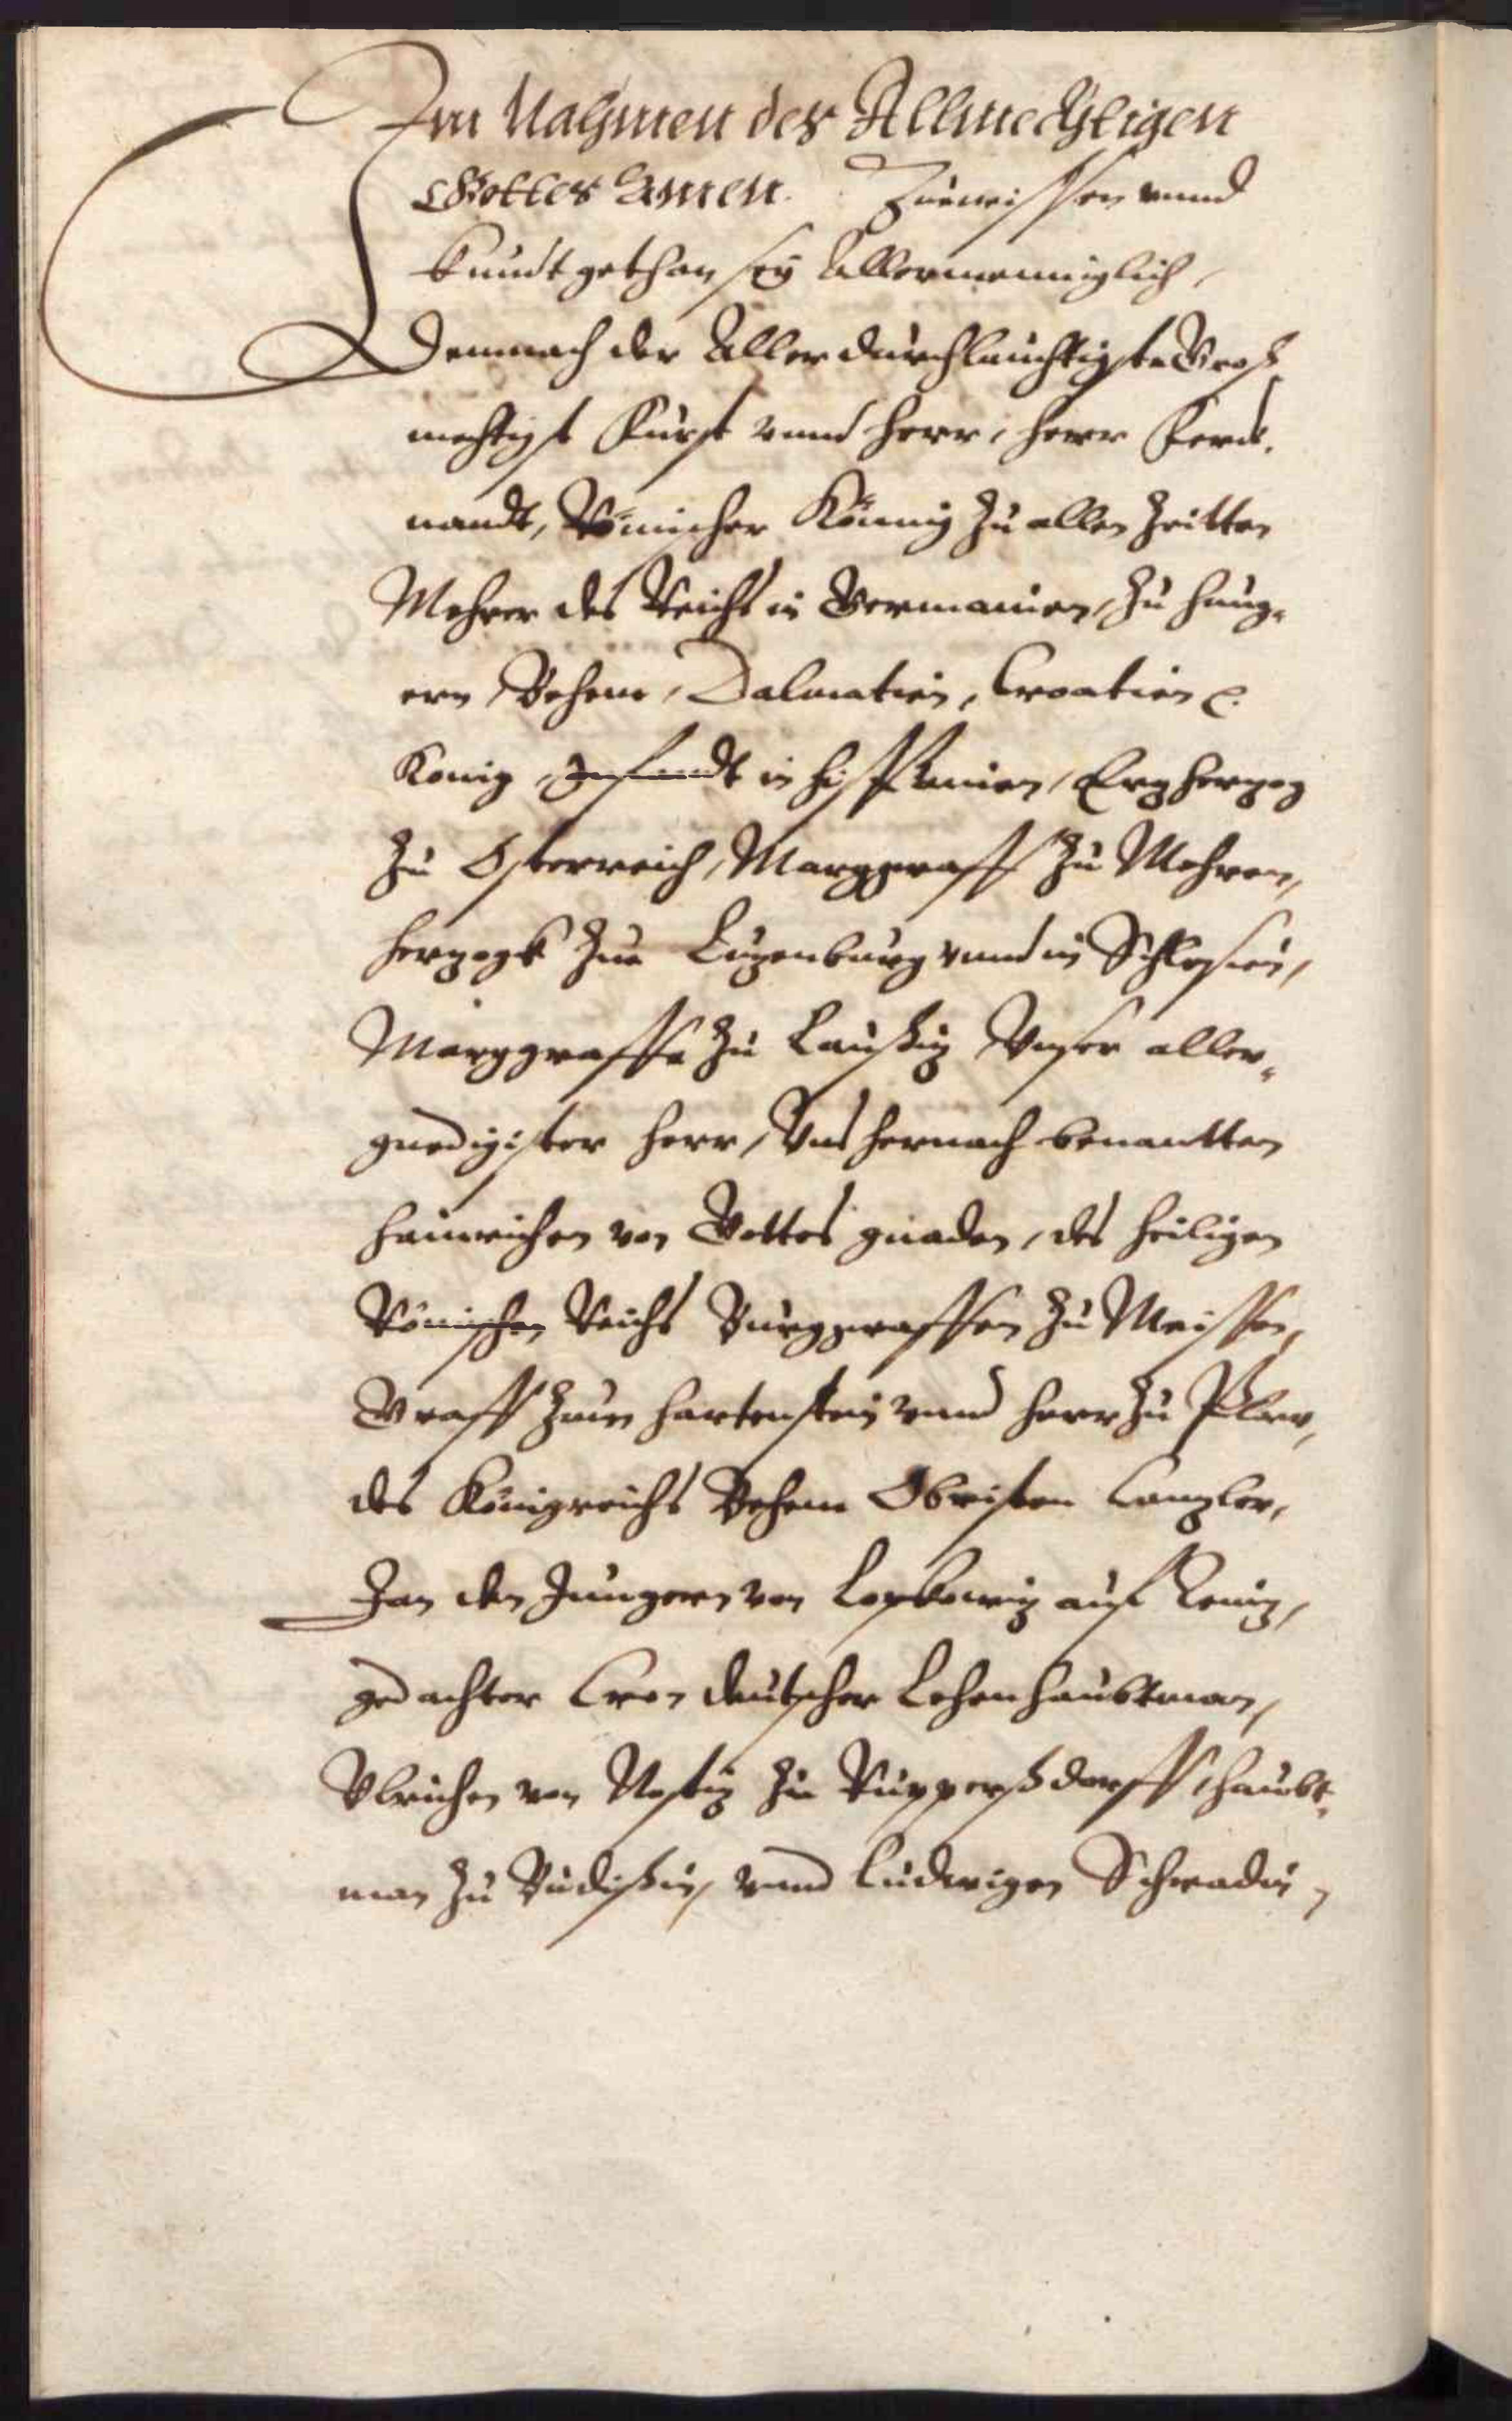 Im Nahmen des Allmechtigen
Gottes Amen. Zuewissen vnnd
kundt gethan sey Allermenniglich,
Demnach der Allerdurchlauchtigste Groß
mechtigst Fürst vnnd Herr, Herr Ferdi.
nandt, Römischer König zu allen Zeitten
Mehrer des Reichs in Germanien, zu Hung-
ern Behem, Dalmatien, Croatien ꝛc.
König, Infandt in Hispanien, Ertzhertzog
zu Osterreich, Marggraff zu Mehren,
Hertzogk zue Lutzenburg vnnd in Schlesien,
Marggraffe zu Laußitz Vnser aller-
gnedigister Herr, Vns hernach benantten
Heinrichen von Gottes gnaden, des Heiligen
Römischen Reichs Burggraffen zu Meissen,
Graff zum Hartenstein vnnd Herr zu Plaw,
des Königreichs Behem Obristen Cantzler,
Jan den Jungern von Lopkowitz auf
gedachter Cron deutscher Lehenhaubtman,
Vlrichen von Nostitz zu Rupperßdorff, Haubt-
man zu Budißin, vnnd Ludwigen Schradin,